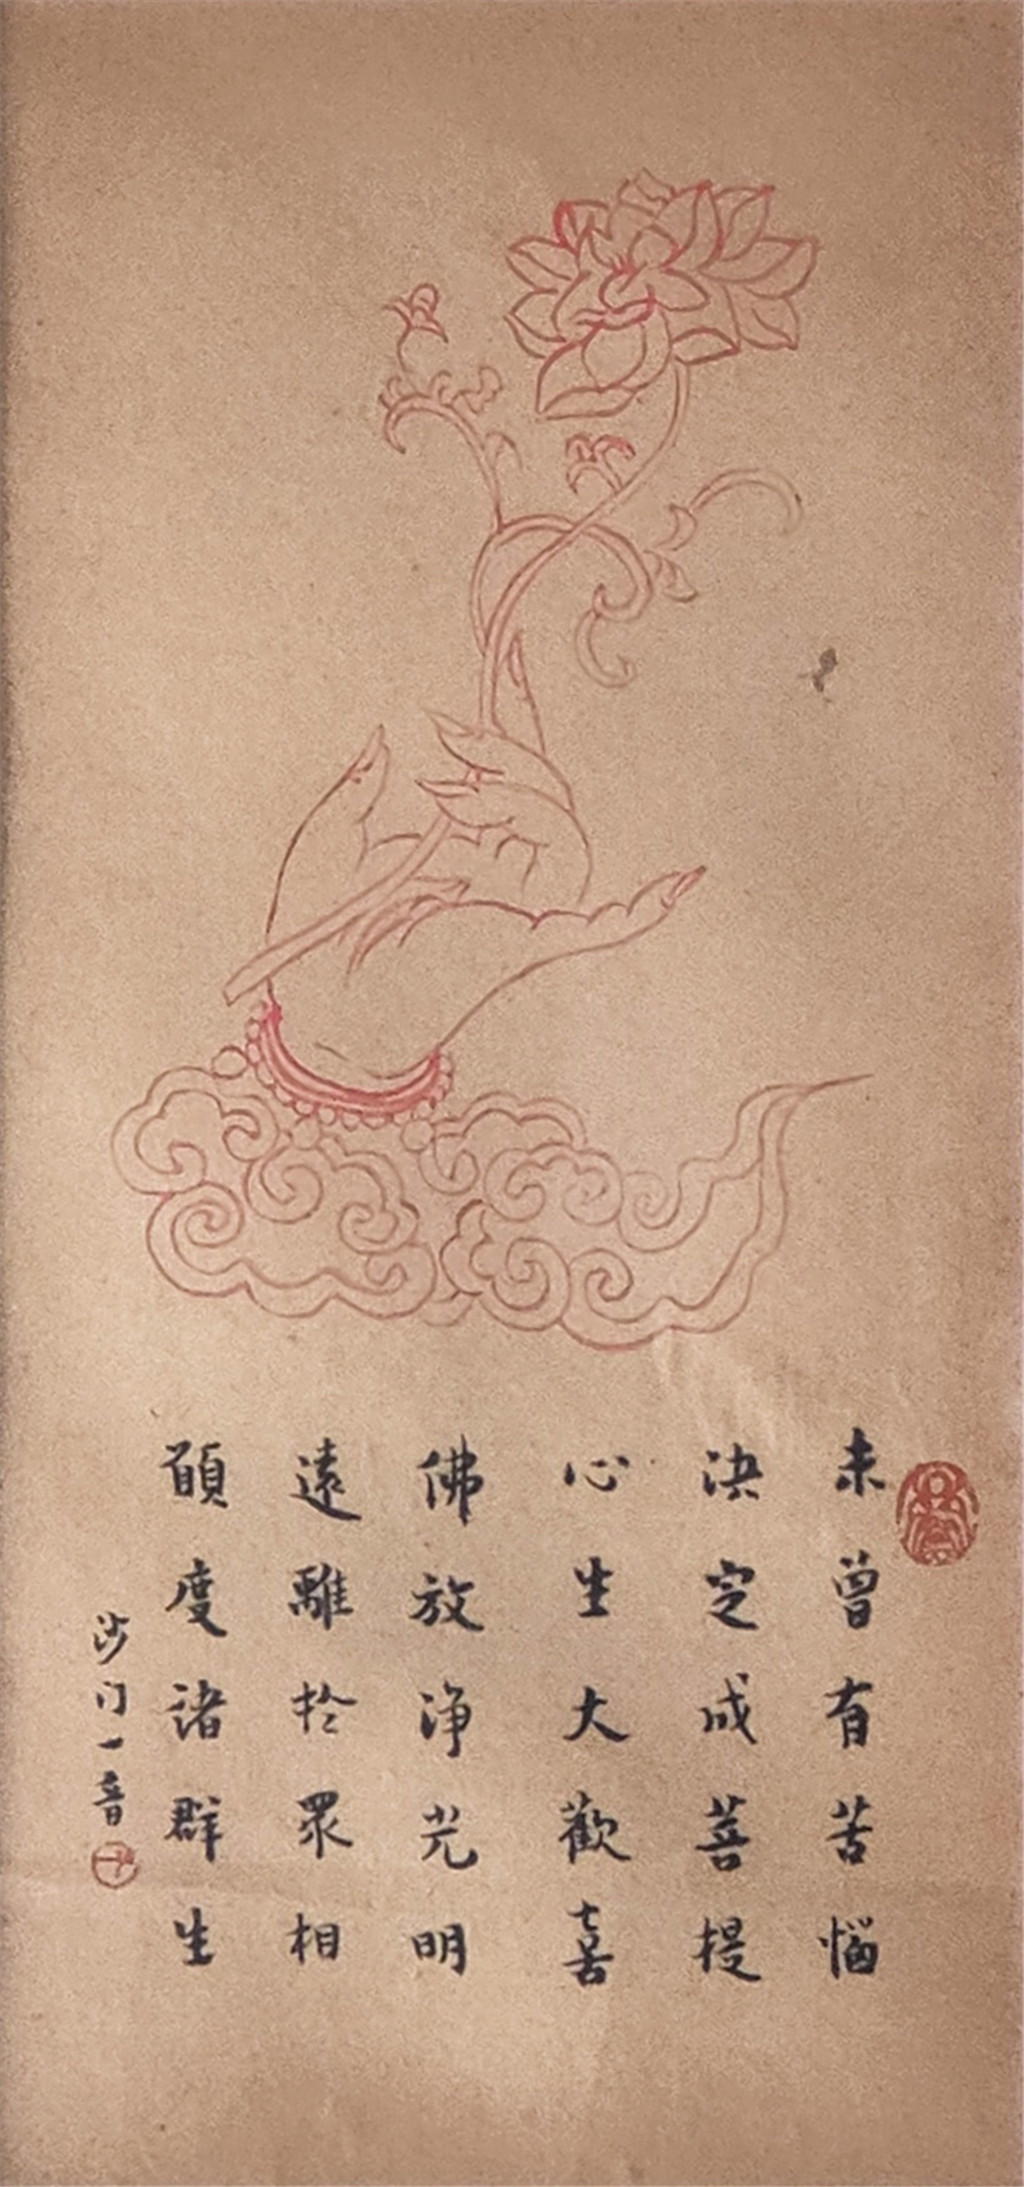 未曾有苦惱
決定成菩提
心生大歡喜
佛放淨光明
遠離扵眾相
願度諸群生
沙门一音